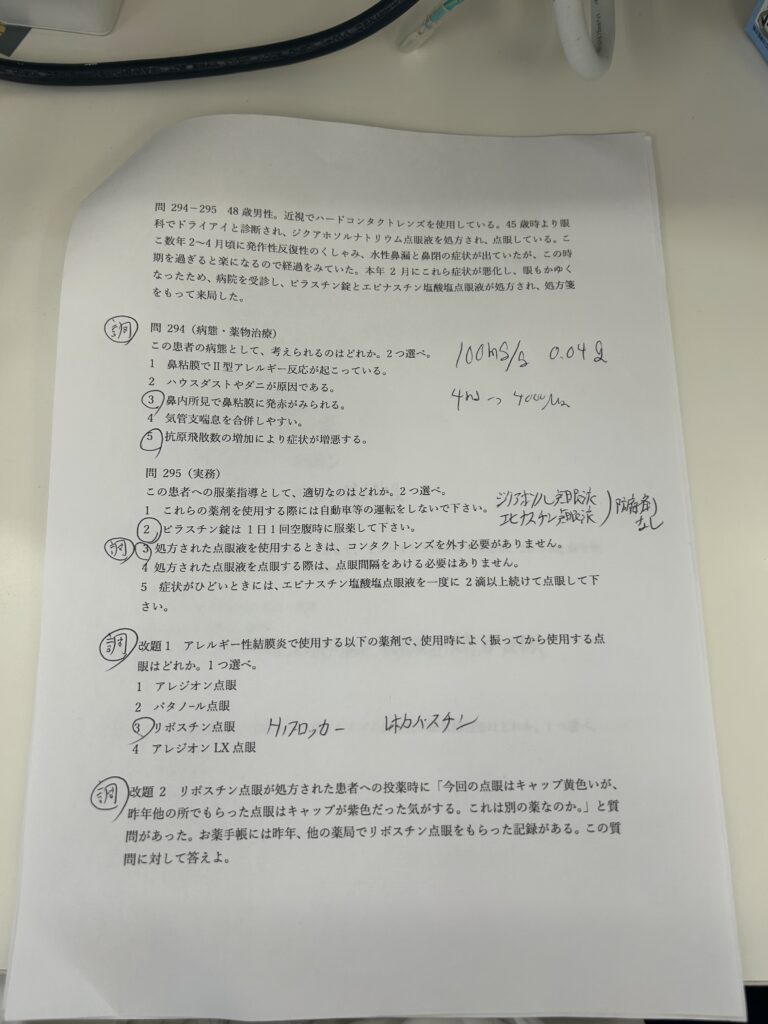 問 294－295　48 歳男性。近視でハードコンタクトレンズを使用している。45 歳時より眼
科でドライアイと診断され、ジクアホソルナトリウム点眼液を処方され、点眼している。こ
こ数年 2～4 月頃に発作性反復性のくしゃみ、水性鼻漏と鼻閉の症状が出ていたが、この時
期を過ぎると楽になるので経過をみていた。本年 2 月にこれら症状が悪化し、眼もかゆく
なったため、病院を受診し、ビラスチン錠とエピナスチン塩酸塩点眼液が処方され、処方箋
をもって来局した。
調 問 294（病態・薬物治療）
この患者の病態として、考えられるのはどれか。2 つ選べ。
1　鼻粘膜でⅡ型アレルギー反応が起こっている。
2　ハウスダストやダニが原因である。
3　鼻内所見で鼻粘膜に発赤がみられる。
4　気管支喘息を合併しやすい。
5　抗原飛散数の増加により症状が増悪する。
100mg/g 0.04g
問 295（実務）
この患者への服薬指導として、適切なのはどれか。2 つ選べ。
1　これらの薬剤を使用する際には自動車等の運転をしないで下さい。
2　ビラスチン錠は 1 日 1 回空腹時に服薬して下さい。
調 3　処方された点眼液を使用するときは、コンタクトレンズを外す必要がありません。
4　処方された点眼液を点眼する際は、点眼間隔をあける必要はありません。
5　症状がひどいときには、エピナスチン塩酸塩点眼液を一度に 2 滴以上続けて点眼して下
さい。
点眼液
エピナスチン点眼液
防腐剤
なし
調 改題 1　アレルギー性結膜炎で使用する以下の薬剤で、使用時によく振ってから使用する点
眼はどれか。1 つ選べ。
1　アレジオン点眼
2　パタノール点眼
3　リボスチン点眼　H1ブロッカー　レボカバスチン
4　アレジオン LX 点眼
調 改題 2　リボスチン点眼が処方された患者への投薬時に「今回の点眼はキャップ黄色いが、
昨年他の所でもらった点眼はキャップが紫色だった気がする。これは別の薬なのか。」と質
問があった。お薬手帳には昨年、他の薬局でリボスチン点眼をもらった記録がある。この質
問に対して答えよ。